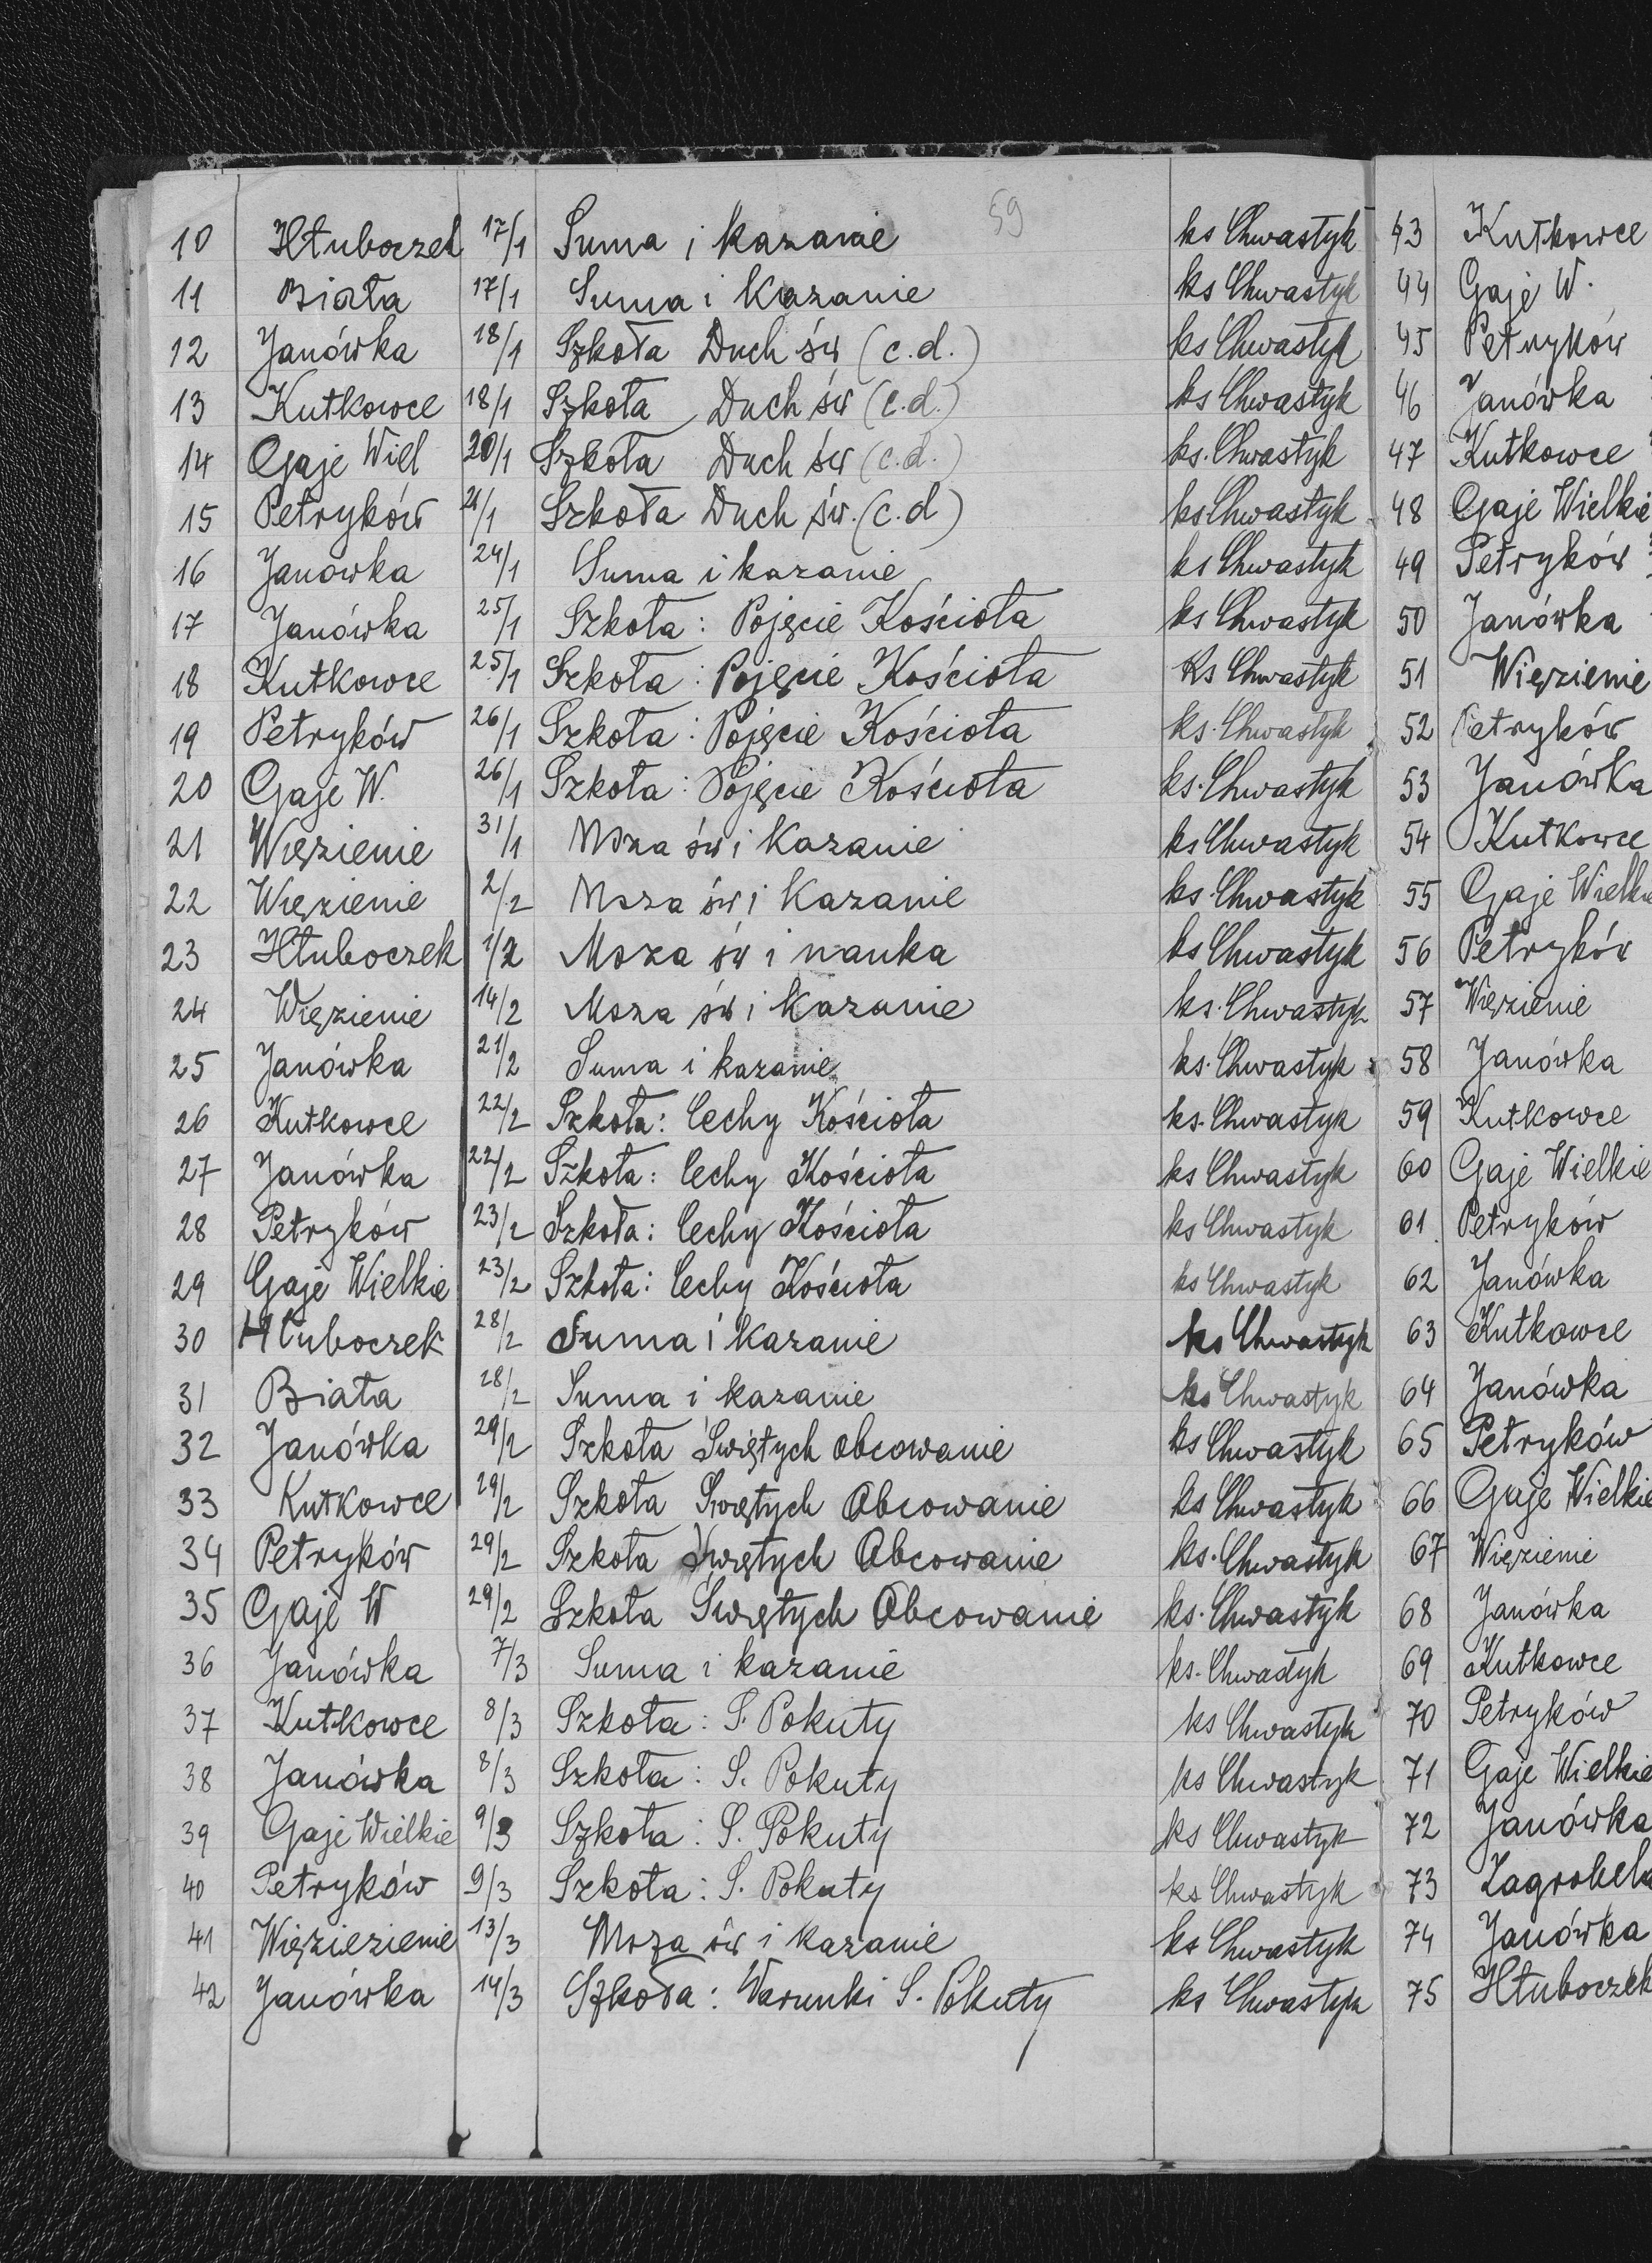 59
10 Hłuboczek 17/1 Suma i kazanie ks Chwastyk
11 Biała 17/1 Suma i kazanie ks Chwastyk
12 Janówka 18/1 Szkoła Duch św (c.d.) ks Chwastyk
13 Kutkowce 18/1 Szkoła Duch św (c.d.) ks Chwastyk
14 Gaje Wiel 20/1 Szkoła Duch św (c.d.) ks. Chwastyk
15 Petryków 21/1 Szkoła Duch św. (c.d) ks. Chwastyk
16 Janówka 24/1 Suma i kazanie ks Chwastyk
17 Janówka 25/1 Szkoła: Pojęcie Kościoła ks Chwastyk
18 Kutkowce 25/1 Szkoła: Pojęcie Kościoła ks Chwastyk
19 Petryków 26/1 Szkoła: Pojęcie Kościoła ks. Chwastyk
20 Gaje W. 26/1 Szkoła: Pojęcie Kościoła ks. Chwastyk
21 Więzienie 31/1 Msza św i kazanie ks Chwastyk
22 Więzienie 2/2 Msza św i kazanie ks. Chwastyk
23 Hłuboczek 1/2 Msza św i nauka ks Chwastyk
24 Więzienie 14/2 Msza św i kazanie ks. Chwastyk
25 Janówka 21/2 Suma i kazanie ks. Chwastyk
26 Kutkowce 22/2 Szkoła: Cechy Kościoła ks. Chwastyk
27 Janówka 22/2 Szkoła: Cechy Kościoła ks Chwastyk
28 Petryków 23/2 Szkoła: Cechy Kościoła ks Chwastyk
29 Gaje Wielkie 23/2 Szkoła: Cechy Kościoła ks Chwastyk
30 Hłuboczek 28/2 Suma i kazanie ks Chwastyk
31 Biała 28/2 Suma i kazanie ks Chwastyk
32 Janówka 29/2 Szkoła Świętych obcowanie ks Chwastyk
33 Kutkowce 29/2 Szkoła Świętych Obcowanie ks Chwastyk
34 Petryków 29/2 Szkoła Świętych Obcowanie ks. Chwastyk
35 Gaje W 29/2 Szkoła Świętych Obcowanie ks. Chwastyk
36 Janówka 7/3 Suma i kazanie ks. Chwastyk
37 Kutkowce 8/3 Szkoła: S. Pokuty ks Chwastyk
38 Janówka 8/3 Szkoła: S. Pokuty ks Chwastyk
39 Gaje Wielkie 9/3 Szkoła: S. Pokuty ks Chwastyk
40 Petryków 9/3 Szkoła: S. Pokuty ks Chwastyk
41 Więziezienie 13/3 Msza św i kazanie ks Chwastyk
42 Janówka 14/3 Szkoła: Warunki S. Pokuty ks Chwastyk
43 Kutkowce
44 Gaje W.
45 Petryków
46 Janówka
47 Kutkowce
48 Gaje Wielkie
49 Petryków
50 Janówka
51 Więzienie
52 Petryków
53 Janówka
54 Kutkowce
55 Gaje Wielkie
56 Petryków
57 Więzienie
58 Janówka
59 Kutkowce
60 Gaje Wielkie
61 Petryków
62 Janówka
63 Kutkowce
64 Janówka
65 Petryków
66 Gaje Wielkie
67 Więzienie
68 Janówka
69 Kutkowce
70 Petryków
71 Gaje Wielkie
72 Janówka
73 Zagrobela
74 Janówka
75 Hłuboczek